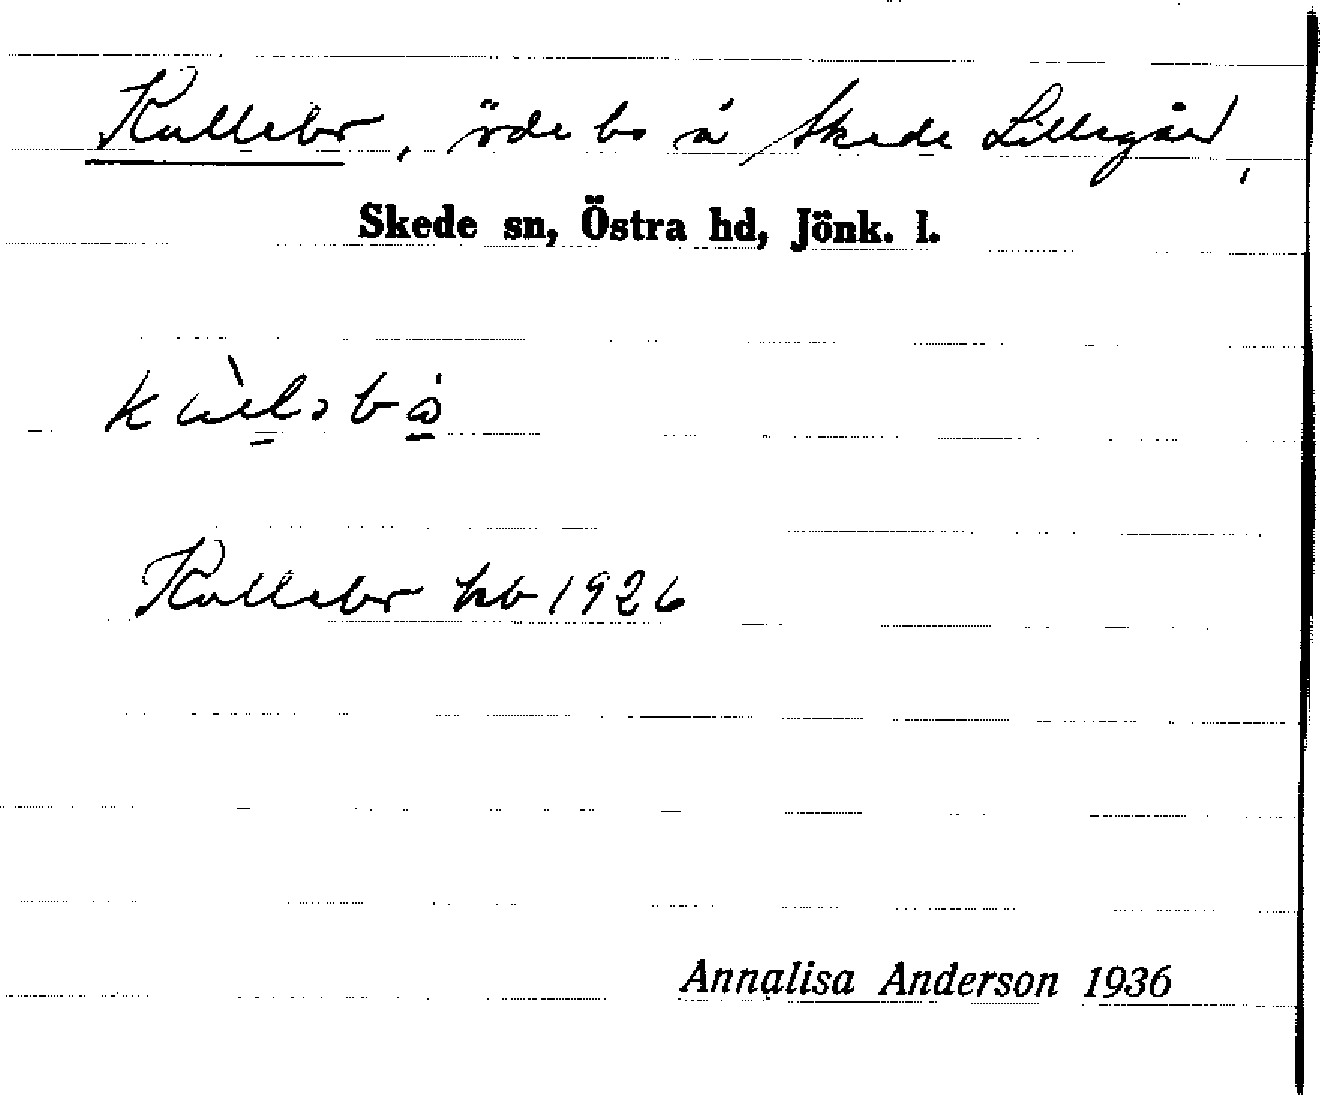 Kallebo, öde bs å Skede Lillegård,
Skede sn, Östra hd, Jönk. l.
Kallebo hb 1926
Annalisa Anderson 1936